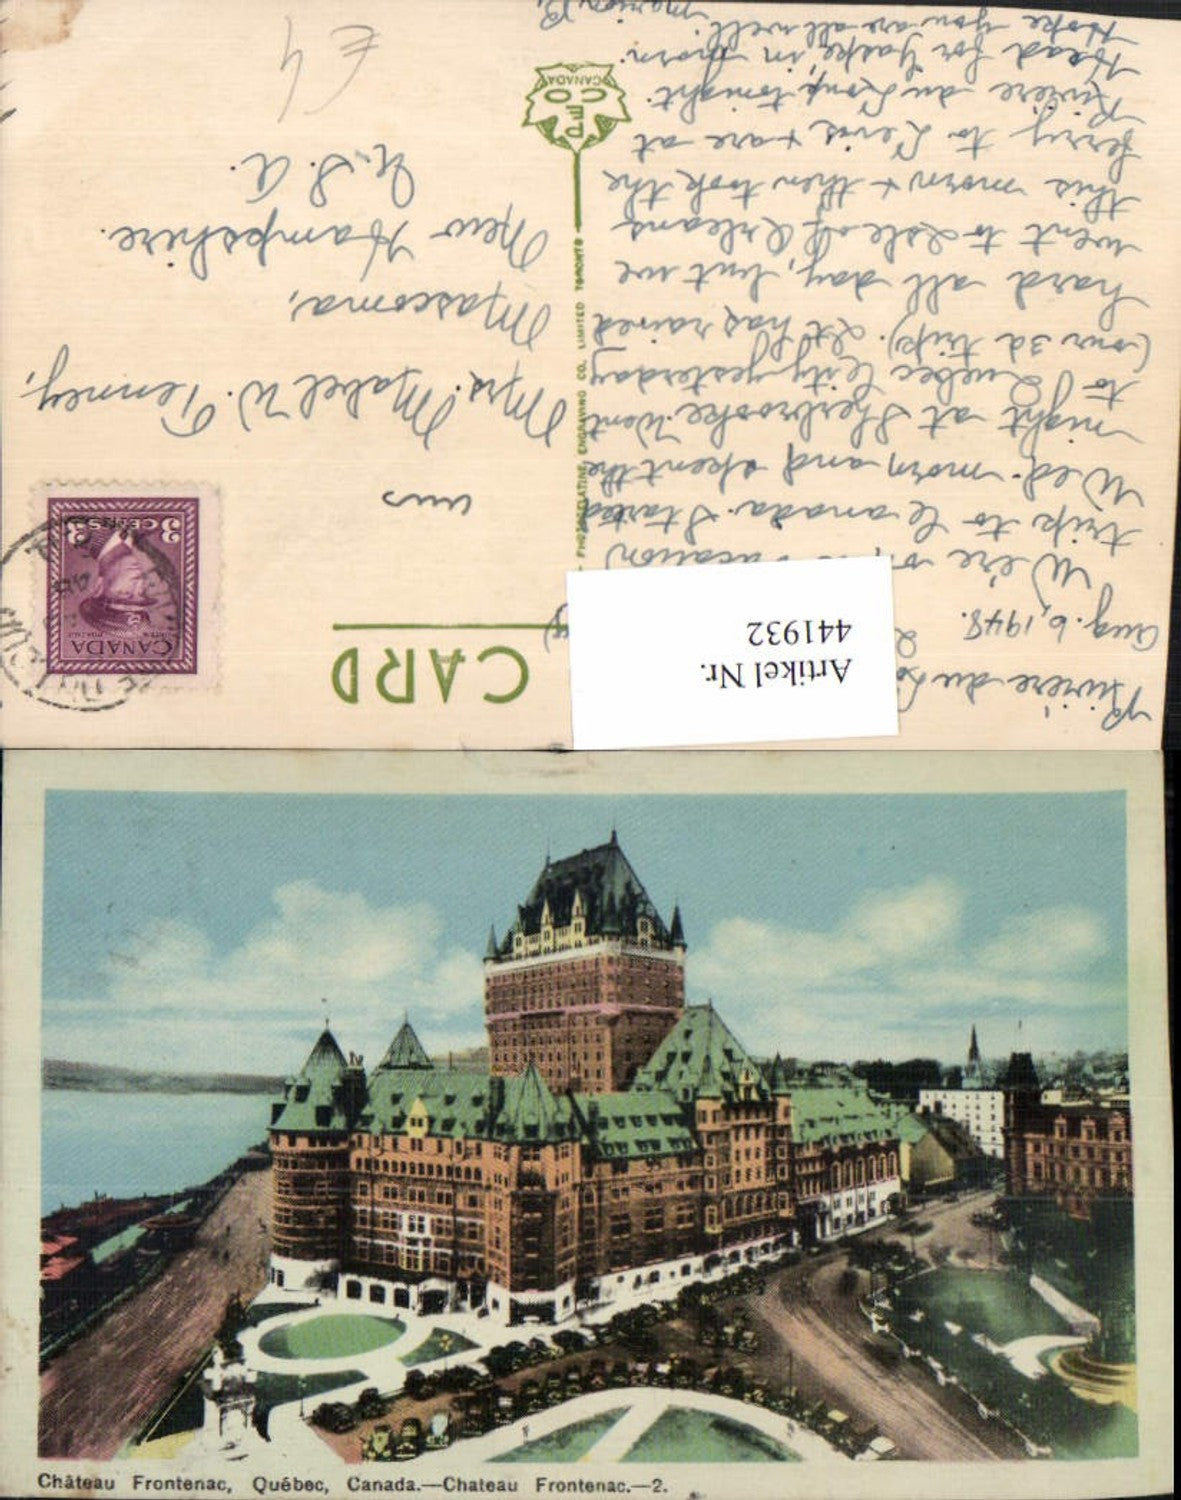 Rivière du Lo
Aug. 6, 1948.
We're
trip to Canada. Started
Wed. morn and spent the
night at Sherbrooke. Went
to Quebec City yesterday
(our 3d trip). It has rained
hard all day, but we
went to Isle of Orleans
this morn + then took the
ferry to Levis + are at
Rivière du Loup tonight.
Head for Gaspe, in morn.
Hope you are all well.
Marion B.
CARD
CANADA
3 CENTS 3
Mrs. Mabel W. Tenney,
Mascoma,
New Hampshire.
U.S.A.
PHOTOGELATINE ENGRAVING CO. LIMITED TORONTO
PECO
CANADA
€ 4
Artikel Nr.
441932
Château Frontenac, Québec, Canada.—Chateau Frontenac.—2.